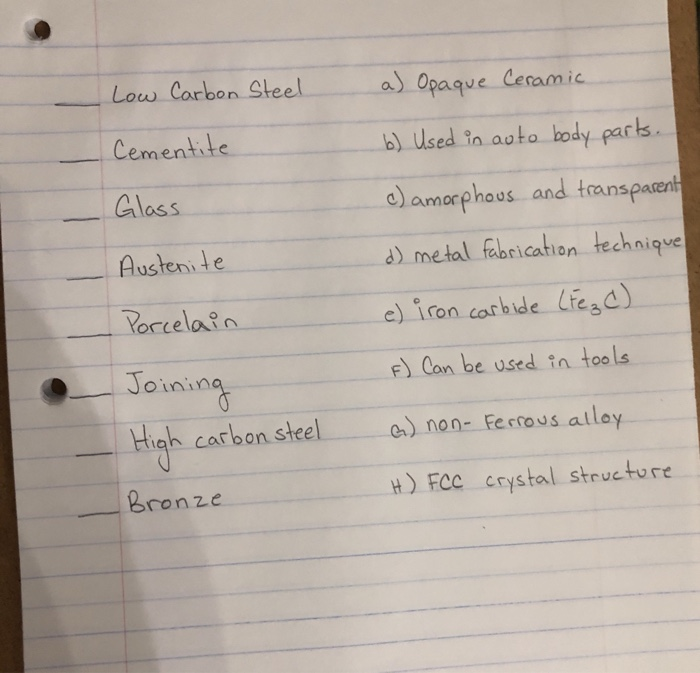 __ Low Carbon Steel a) Opaque Ceramic
__ Cementite b) Used in auto body parts.
__ Glass c) amorphous and transparent
__ Austenite d) metal fabrication technique
__ Porcelain e) iron carbide (Fe₃C)
__ Joining F) Can be used in tools
__ High carbon steel G) non-Ferrous alloy
__ Bronze H) FCC crystal structure